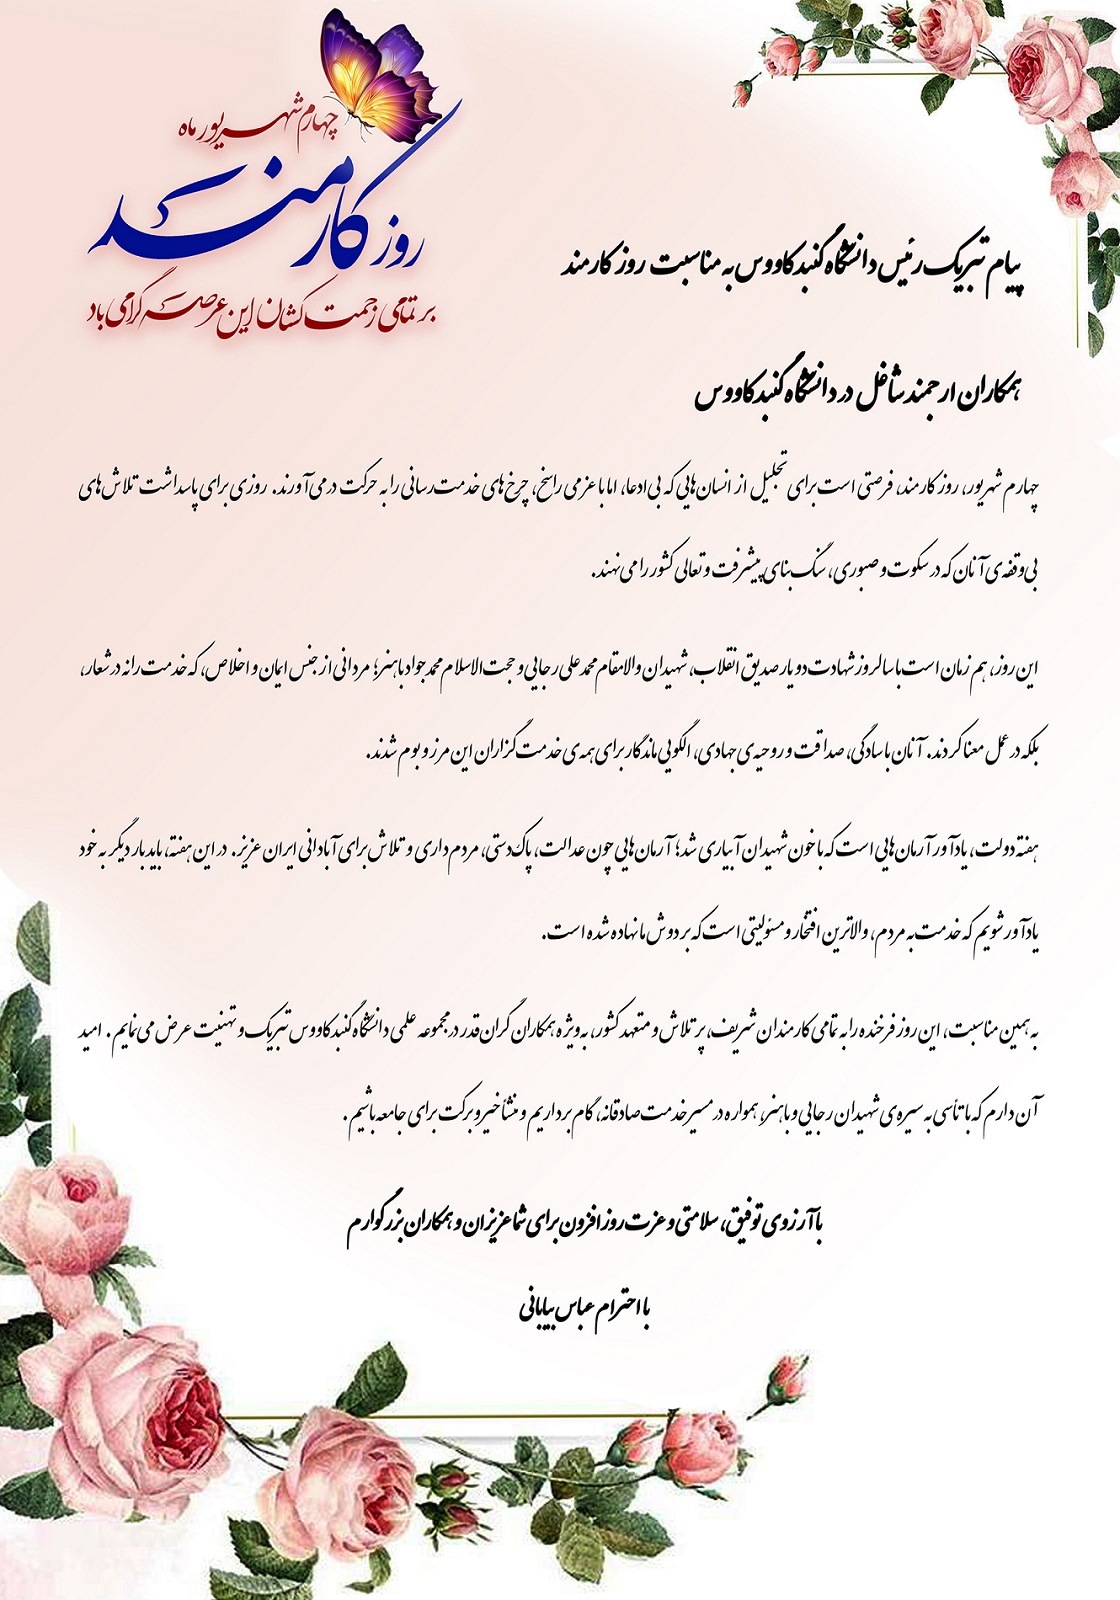 چهارم شهریور ماه
روز کارمند
بر تمامی زحمت کشان این عرصه گرامی باد
پیام تبریک رئیس دانشگاه گنبد کاووس به مناسبت روز کارمند
همکاران ارجمند شاغل در دانشگاه گنبد کاووس
چهارم شهریور، روز کارمند، فرصتی است برای تجلیل از انسان‌هایی که بی‌ادعا، اما با عزمی راسخ، چرخ‌های خدمت‌رسانی را به حرکت درمی‌آورند. روزی برای پاسداشت تلاش‌های
بی‌وقفه‌ی آنان که در سکوت و صبوری، سنگ بنای پیشرفت و تعالی کشور را می‌نهند.
این روز، هم زمان است با سالروز شهادت دو یار صدیق انقلاب، شهیدان والامقام محمدعلی رجایی و حجت‌الاسلام محمدجواد باهنر؛ مردانی از جنس ایمان و اخلاص، که خدمت را نه در شعار،
بلکه در عمل معنا کردند. آنان با سادگی، صداقت و روحیه‌ی جهادی، الگویی ماندگار برای همه‌ی خدمت‌گزاران این مرز و بوم شدند.
هفته دولت، یادآور آرمان‌هایی است که با خون شهیدان آبیاری شد؛ آرمان‌هایی چون عدالت، پاک‌دستی، مردم‌داری و تلاش برای آبادانی ایران عزیز. در این هفته، باید بار دیگر به خود
یادآور شویم که خدمت به مردم، والاترین افتخار و مسئولیتی است که بر دوش ما نهاده شده است.
به همین مناسبت، این روز فرخنده را به تمامی کارمندان شریف، پر تلاش و متعهد کشور، به‌ویژه همکاران گران‌قدر در مجموعه علمی دانشگاه گنبد کاووس تبریک و تهنیت عرض می‌نمایم. امید
آن دارم که با تأسی به سیره‌ی شهیدان رجایی و باهنر، همواره در مسیر خدمت صادقانه، گام برداریم و منشأ خیر و برکت برای جامعه باشیم.
با آرزوی توفیق، سلامتی و عزت روزافزون برای شما عزیزان و همکاران بزرگوارم
با احترام عباس بیابانی